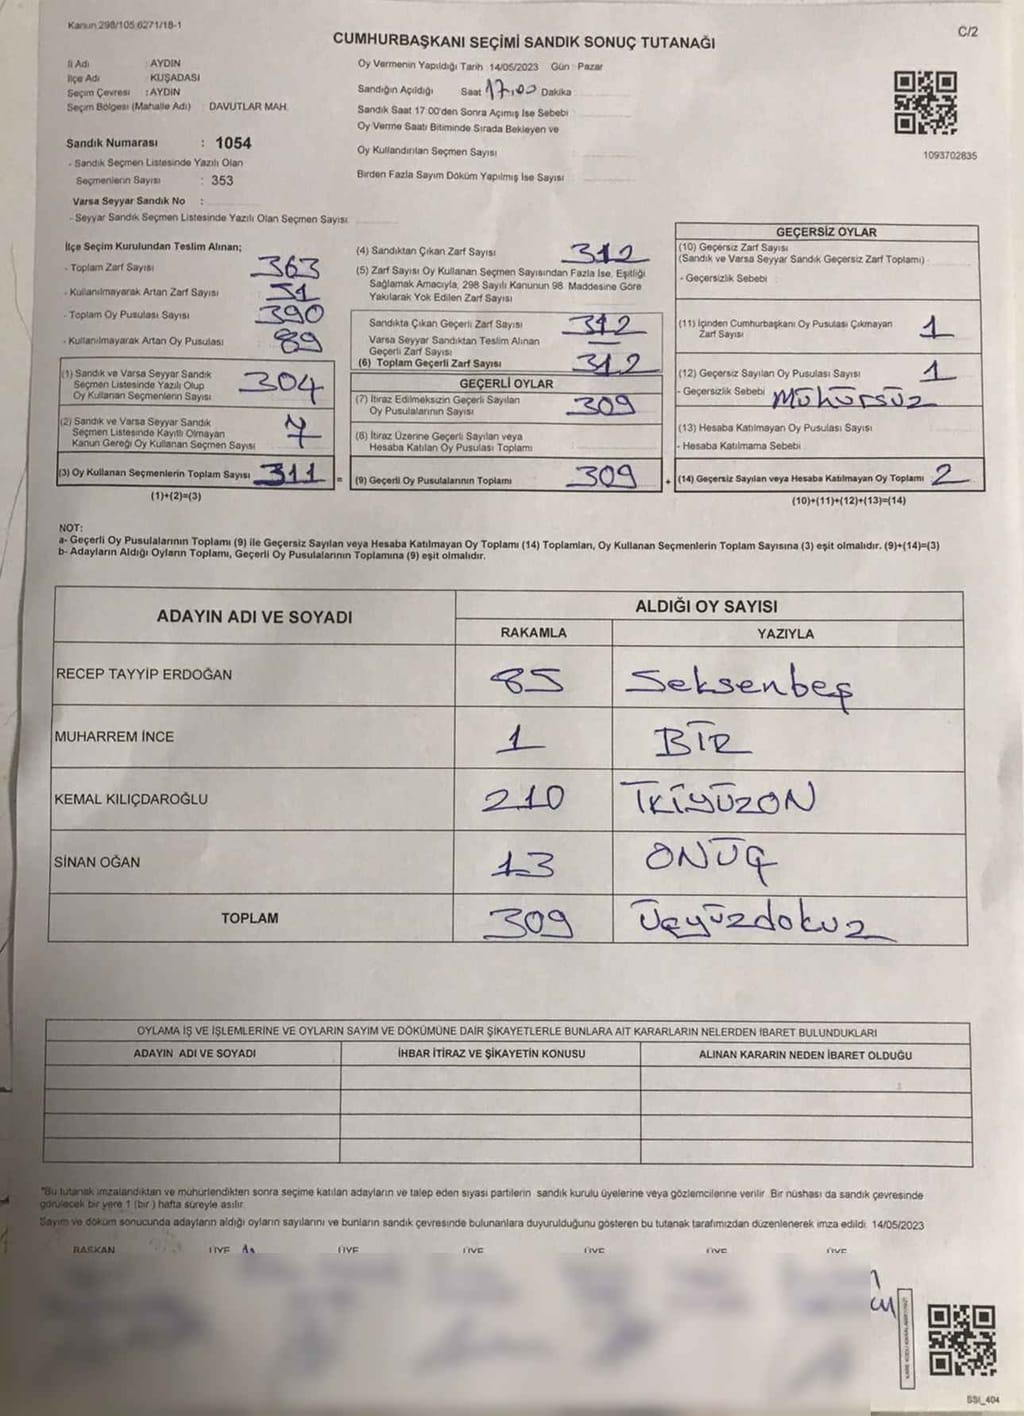 Kanun 298/105 6271/18-1
C/2
CUMHURBAŞKANI SEÇİMİ SANDIK SONUÇ TUTANAĞI
İl Adı : AYDIN
İlçe Adı : KUŞADASI
Seçim Çevresi : AYDIN
Seçim Bölgesi (Mahalle Adı) : DAVUTLAR MAH.
Sandık Numarası : 1054
- Sandık Seçmen Listesinde Yazılı Olan
Seçmenlerin Sayısı : 353
Varsa Seyyar Sandık No :
- Seyyar Sandık Seçmen Listesinde Yazılı Olan Seçmen Sayısı
Oy Vermenin Yapıldığı Tarih 14/05/2023 Gün : Pazar
Sandığın Açıldığı Saat 17.00 Dakika
Sandık Saat 17:00'den Sonra Açımış İse Sebebi
Oy Verme Saati Bitiminde Sırada Bekleyen ve
Oy Kullandırılan Seçmen Sayısı
Birden Fazla Sayım Döküm Yapılmış İse Sayısı
1093702835
İlçe Seçim Kurulundan Teslim Alınan;
- Toplam Zarf Sayısı 363
- Kullanılmayarak Artan Zarf Sayısı 51
- Toplam Oy Pusulası Sayısı 390
- Kullanılmayarak Artan Oy Pusulası 89
(1) Sandık ve Varsa Seyyar Sandık
Seçmen Listesinde Yazılı Olup
Oy Kullanan Seçmenlerin Sayısı 304
(2) Sandık ve Varsa Seyyar Sandık
Seçmen Listesinde Kayıtlı Olmayan
Kanun Gereği Oy Kullanan Seçmen Sayısı 7
(3) Oy Kullanan Seçmenlerin Toplam Sayısı 311 =
(1)+(2)=(3)
(4) Sandıktan Çıkan Zarf Sayısı 312
(5) Zarf Sayısı Oy Kullanan Seçmen Sayısından Fazla İse, Eşitliği
Sağlamak Amacıyla, 298 Sayılı Kanunun 98. Maddesine Göre
Yakılarak Yok Edilen Zarf Sayısı
Sandıkta Çıkan Geçerli Zarf Sayısı 312
Varsa Seyyar Sandıktan Teslim Alınan
Geçerli Zarf Sayısı —
(6) Toplam Geçerli Zarf Sayısı 312
GEÇERLİ OYLAR
(7) İtiraz Edilmeksizin Geçerli Sayılan
Oy Pusulalarının Sayısı 309
(8) İtiraz Üzerine Geçerli Sayılan veya
Hesaba Katılan Oy Pusulası Toplamı
(9) Geçerli Oy Pusulalarının Toplamı 309 +
GEÇERSİZ OYLAR
(10) Geçersiz Zarf Sayısı
(Sandık ve Varsa Seyyar Sandık Geçersiz Zarf Toplamı)
- Geçersizlik Sebebi
(11) İçinden Cumhurbaşkanı Oy Pusulası Çıkmayan
Zarf Sayısı 1
(12) Geçersiz Sayılan Oy Pusulası Sayısı 1
- Geçersizlik Sebebi Mühürsüz
(13) Hesaba Katılmayan Oy Pusulası Sayısı
- Hesaba Katılmama Sebebi
(14) Geçersiz Sayılan veya Hesaba Katılmayan Oy Toplamı 2
(10)+(11)+(12)+(13)=(14)
NOT:
a- Geçerli Oy Pusulalarının Toplamı (9) ile Geçersiz Sayılan veya Hesaba Katılmayan Oy Toplamı (14) Toplamları, Oy Kullanan Seçmenlerin Toplam Sayısına (3) eşit olmalıdır. (9)+(14)=(3)
b- Adayların Aldığı Oyların Toplamı, Geçerli Oy Pusulalarının Toplamına (9) eşit olmalıdır.
ADAYIN ADI VE SOYADI
ALDIĞI OY SAYISI
RAKAMLA YAZIYLA
RECEP TAYYİP ERDOĞAN 85 Seksenbeş
MUHARREM İNCE 1 BİR
KEMAL KILIÇDAROĞLU 210 İKİYÜZON
SİNAN OĞAN 13 ONÜÇ
TOPLAM 309 Üçyüzdokuz
OYLAMA İŞ VE İŞLEMLERİNE VE OYLARIN SAYIM VE DÖKÜMÜNE DAİR ŞİKAYETLERLE BUNLARA AİT KARARLARIN NELERDEN İBARET BULUNDUKLARI
ADAYIN ADI VE SOYADI İHBAR İTİRAZ VE ŞİKAYETİN KONUSU ALINAN KARARIN NEDEN İBARET OLDUĞU
"Bu tutanak imzalandıktan ve mühürlendikten sonra seçime katılan adayların ve talep eden siyasi partilerin sandık kurulu üyelerine veya gözlemcilerine verilir. Bir nüshası da sandık çevresinde
görülecek bir yere 1 (bir) hafta süreyle asılır.
Sayım ve döküm sonucunda adayların aldığı oyların sayılarını ve bunların sandık çevresinde bulunanlara duyurulduğunu gösteren bu tutanak tarafımızdan düzenlenerek imza edildi. 14/05/2023
BAŞKAN ÜYE ÜYE ÜYE ÜYE ÜYE ÜYE
SSI_404